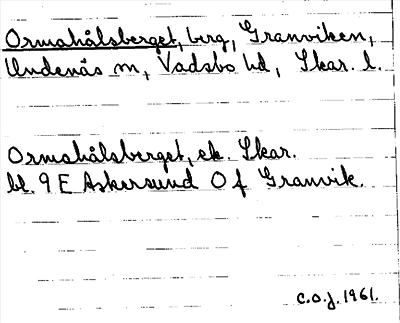 Ormahålsberget, berg, Granviken,
Undenäs sn, Vadsbo hd, Skar. l.
Ormahålsberget, ek. Skar.
bl. 9 E Askersund O f Granvik.
C.O.J. 1961.